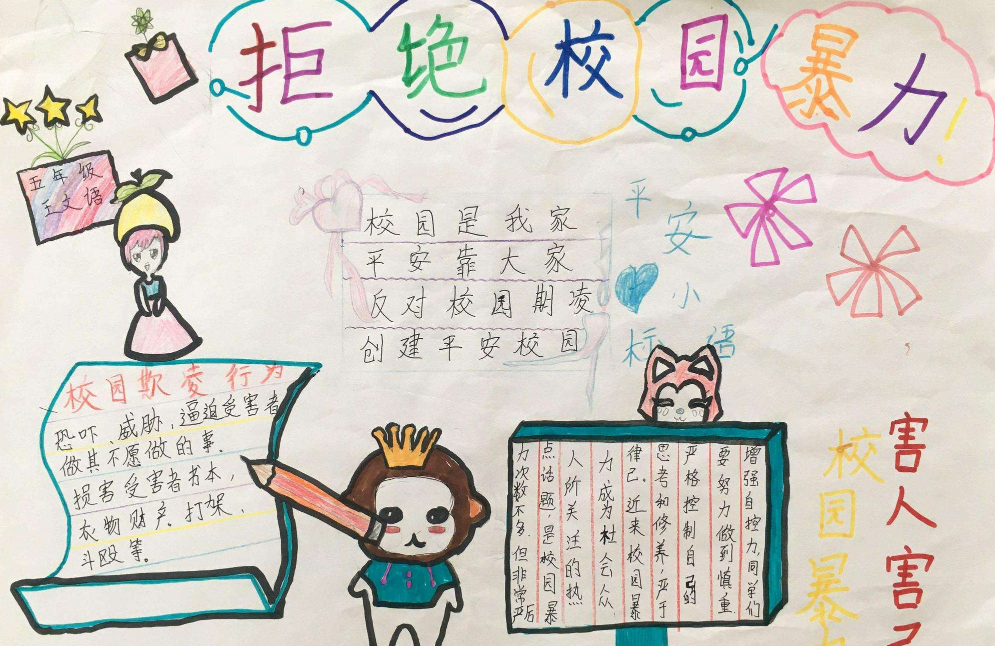 拒绝校园暴力!
五年级
王文
校园是我家
平安靠大家
反对校园期凌
创建平安校园
平安小
标语
校园欺凌行为
恐吓、威胁,逼迫受害者
做其不愿做的事.
损害受害者书本,
衣物财产.打架,
斗殴等。
增强自控力,同学们
要努力做到慎重
严格控制自己的
思考和修养,严于
律己.近来校园暴
力成为杜会众
人所关注的热
点话题,是校园暴
力次数不多.但非常严后
害人害
校园暴